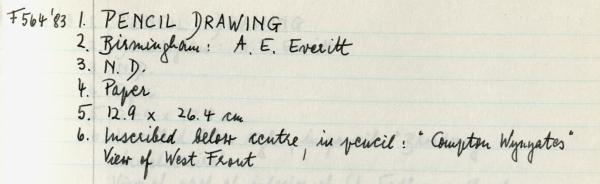 F564'83 1. PENCIL DRAWING
2. Birmingham: A. E. Everitt
3. N. D.
4. Paper
5. 12.9 x 26.4 cm
6. Inscribed below centre, in pencil: "Compton Wynyates"
View of West Front